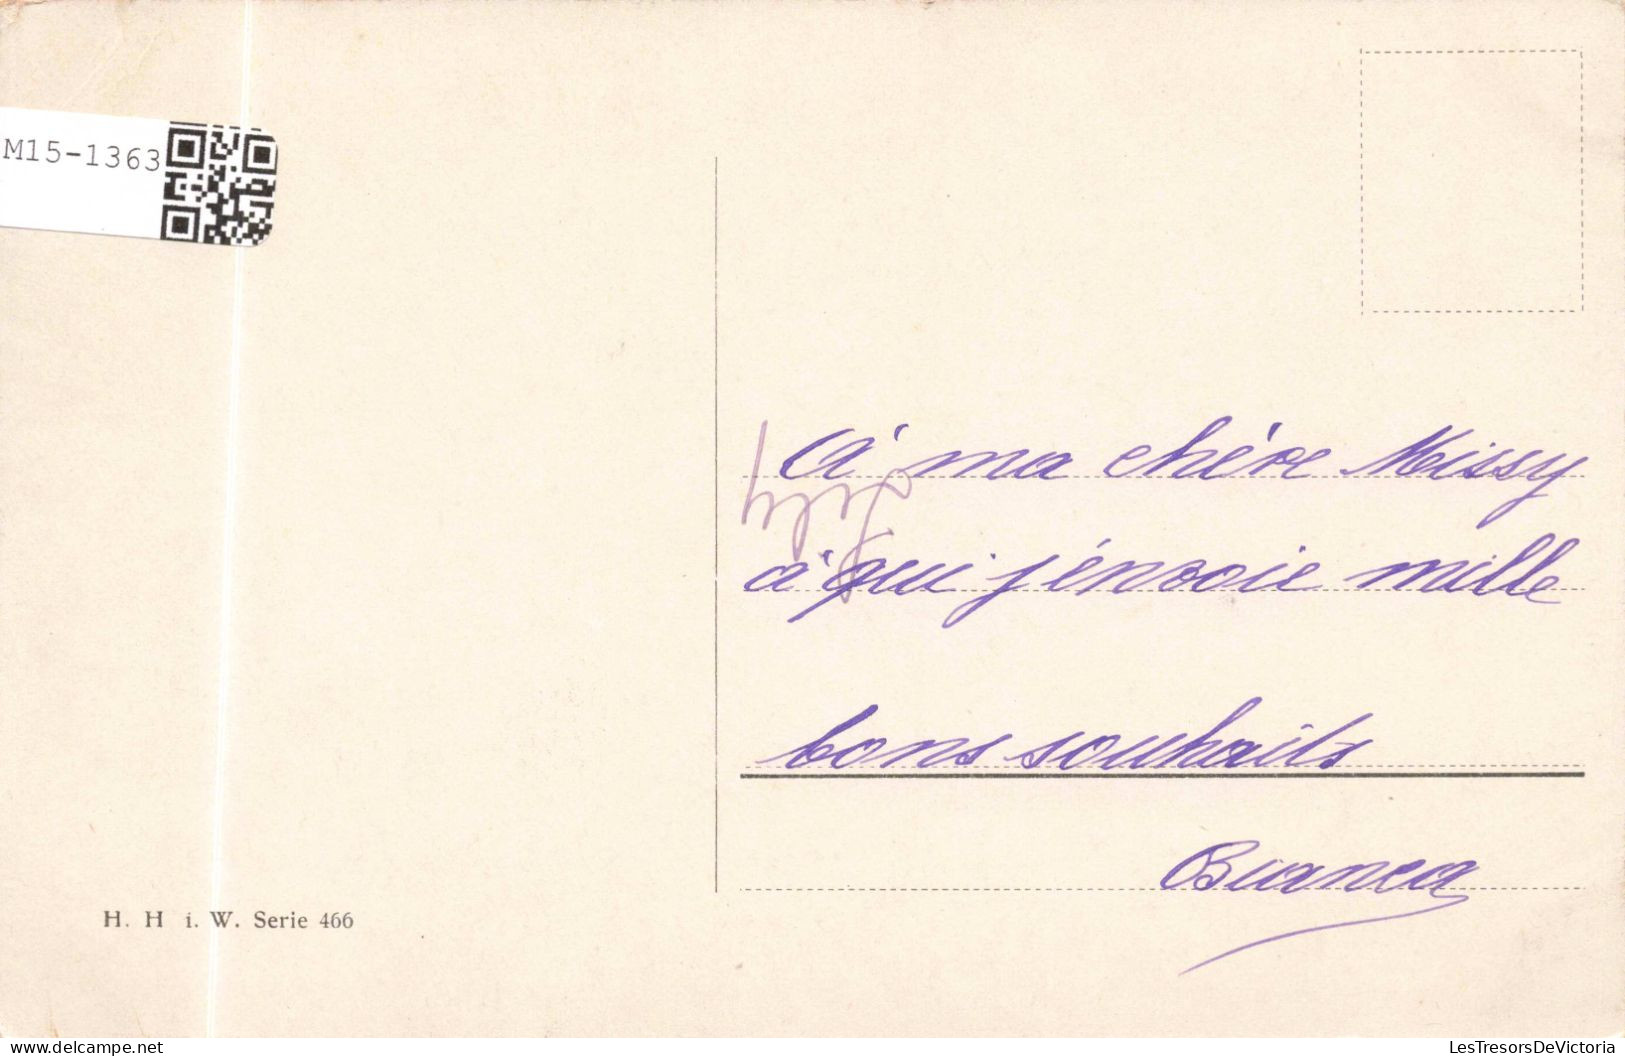 M15-1363
À ma chère Missy
à qui j'énvoie mille
bons souhaits
Bianca
Lily
H. H i. W. Serie 466
LesTresorsDeVictoria
www.delcampe.net